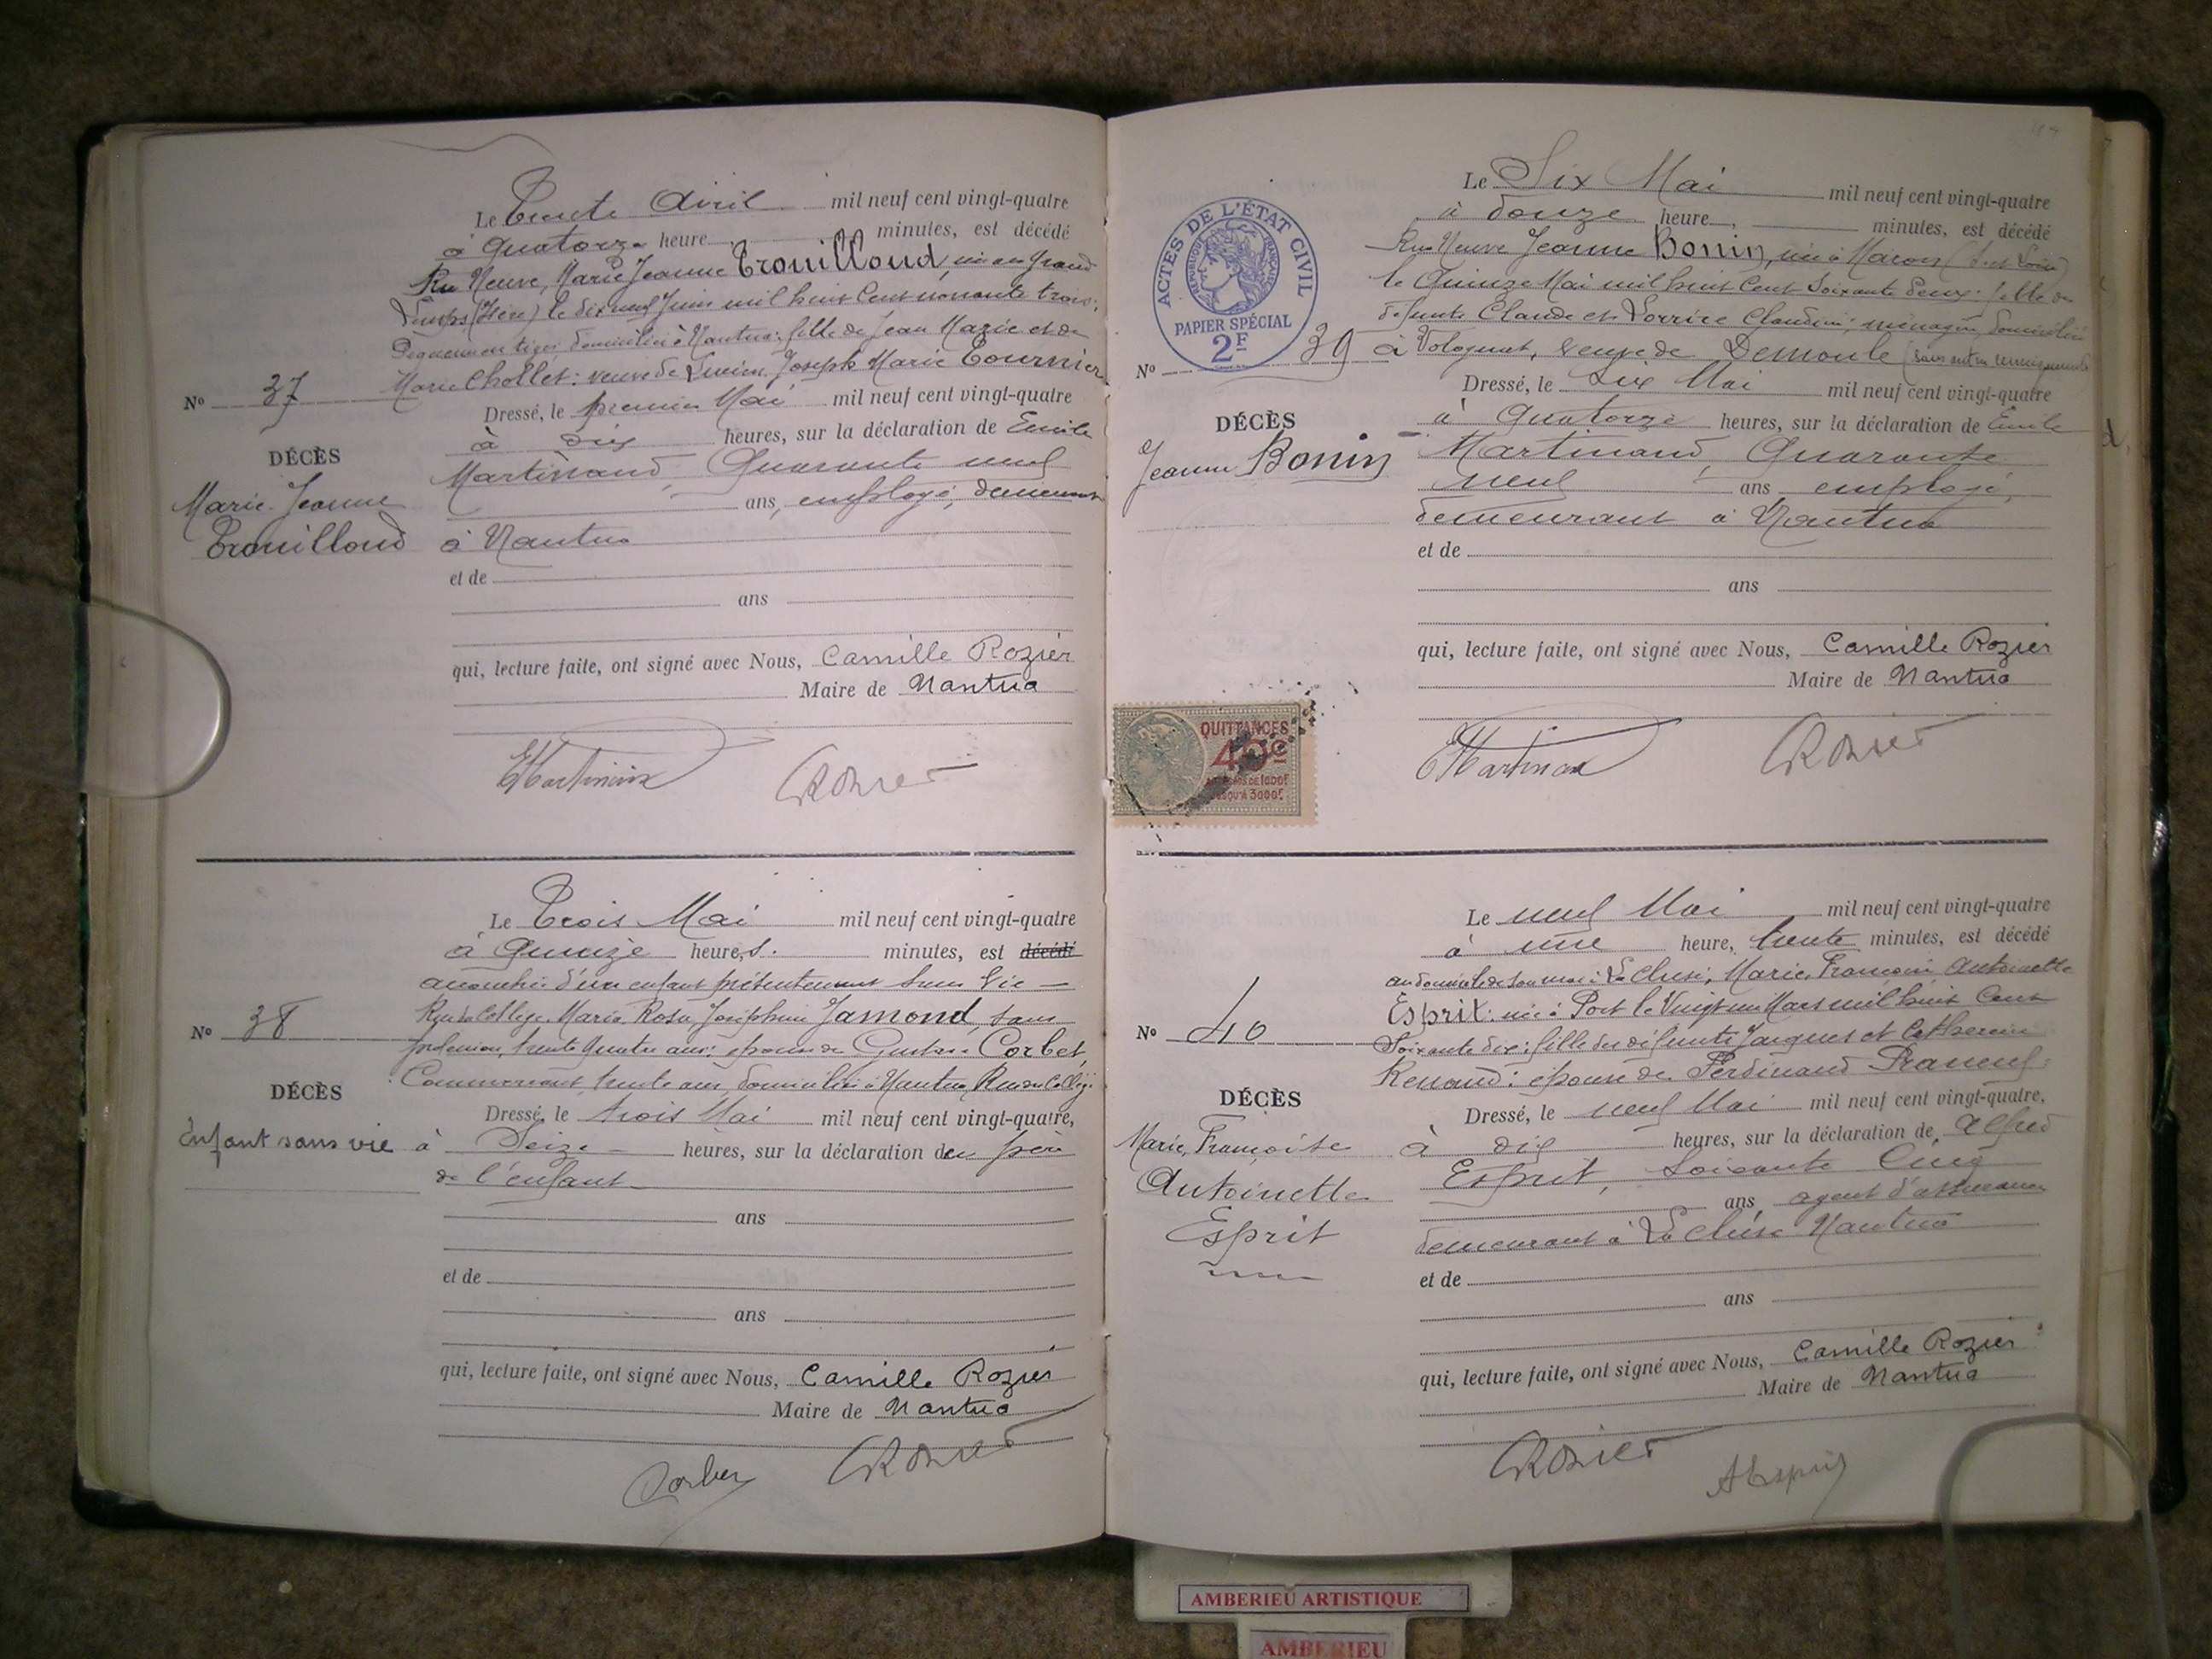 Le Trente Avril mil neuf cent vingt-quatre
à Quatorze heure minutes, est décédé
Rue Neuve, Marie Jeanne Trouilloud, née au Grand
Lemps (Isère) le dix neuf Juin mil huit Cent nonante trois:
domiciliée à Nantua: fille de Jean Marie et de
Marie Chollet: veuve de Lucien Joseph Marie Tournier
No 37
Dressé, le premier Mai mil neuf cent vingt-quatre
à dix heures, sur la déclaration de Emile
DÉCÈS
Marie Jeanne
Trouilloud
Martinand, Quarante neuf
ans, employé, demeurant
à Nantua
et de
ans
qui, lecture faite, ont signé avec Nous, Camille Rozier
Maire de Nantua
EMartinand
CRozier
Le Trois Mai mil neuf cent vingt-quatre
à Quinze heure,s. minutes, est décédé
accouchée d'un enfant présentement sans vie
Rue du Collège Marie Rose Joséphine Jamond, sans
No 38
profession, trente quatre ans: épouse de Gustave Corbet,
Commerçant, trente ans, domiciliés à Nantua, Rue du Collège
DÉCÈS
Enfant sans vie
Dressé, le trois Mai mil neuf cent vingt-quatre,
à Seize heures, sur la déclaration de du père
de l'enfant
ans
et de
ans
qui, lecture faite, ont signé avec Nous, Camille Rozier
Maire de Nantua
Corbet
CRozier
ACTES DE L'ÉTAT CIVIL
RÉPUBLIQUE FRANÇAISE
PAPIER SPÉCIAL
2F
Le Six Mai mil neuf cent vingt-quatre
à Douze heure, minutes, est décédé
Rue Neuve Jeanne Bonin, née à Macon (S. et Loire)
le Quinze Mai mil huit Cent Soixante deux: fille de
défunts Claude et Claudine: ménagère, domiciliée
No 39
à Volognat, veuve de Demoule (sans autre renseignements)
DÉCÈS
Jeanne Bonin
Dressé, le Six Mai mil neuf cent vingt-quatre
à Quatorze heures, sur la déclaration de Emile
Martinand, Quarante
neuf ans employé,
demeurant à Nantua
et de
ans
qui, lecture faite, ont signé avec Nous, Camille Rozier
Maire de Nantua
QUITTANCES
40c
JUSQU'À 3000F
EMartinand
CRozier
Le neuf Mai mil neuf cent vingt-quatre
à une heure, trente minutes, est décédé
au domicile de son mari à La Cluse, Marie, Françoise Antoinette
Esprit: née à Port le Vingt un Mars mil huit Cent
No 40
Soixante dix: fille des défunts Jacques et Catherine
Renaud: épouse de Ferdinand
DÉCÈS
Marie, Françoise
Antoinette
Esprit
Dressé, le neuf Mai mil neuf cent vingt-quatre,
à dix heures, sur la déclaration de Alfred
Esprit, Soixante Cinq
ans, agent d'assurances
demeurant à La Cluse Nantua
et de
ans
qui, lecture faite, ont signé avec Nous, Camille Rozier
Maire de Nantua
CRozier
AEsprit
AMBERIEU ARTISTIQUE
AMBERIEU